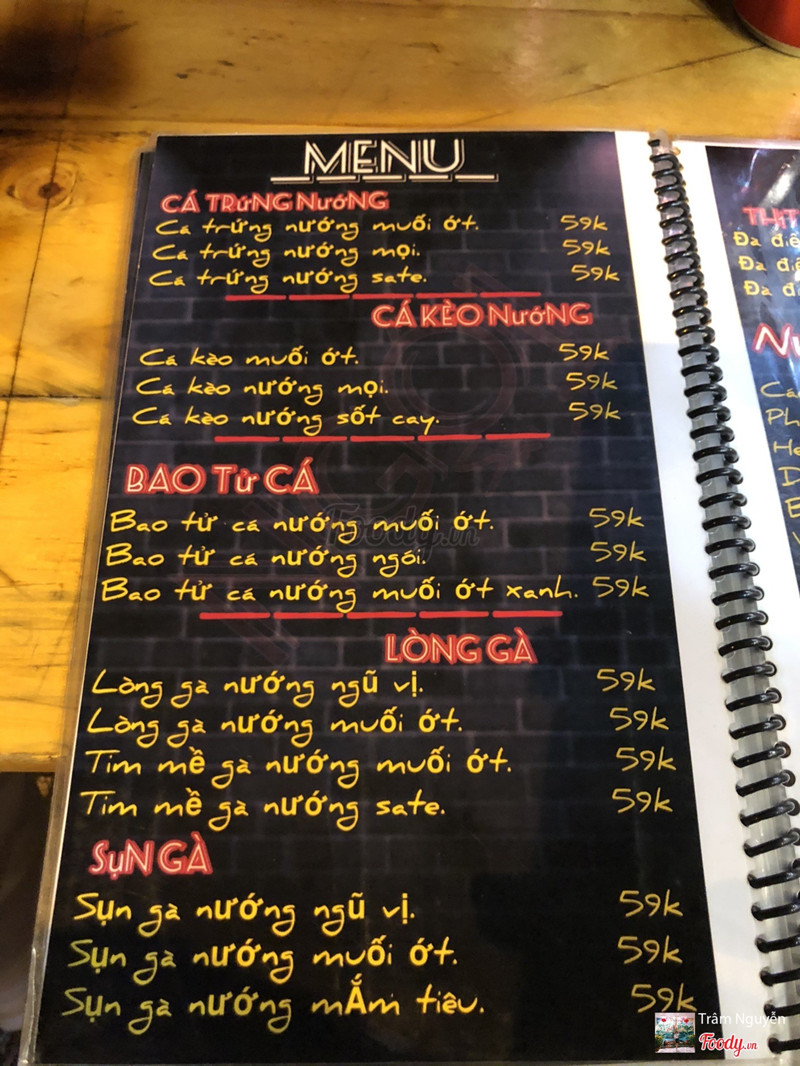 MENU
CÁ TRứNG NướNG
Cá trứng nướng muối ớt. 59k
Cá trứng nướng mọi. 59k
Cá trứng nướng sate. 59k
CÁ KÈO NướNG
Cá kèo muối ớt. 59k
Cá kèo nướng mọi. 59k
Cá kèo nướng sốt cay. 59k
BAO Tử CÁ
Bao tử cá nướng muối ớt. 59k
Bao tử cá nướng ngói. 59k
Bao tử cá nướng muối ớt xanh. 59k
LÒNG GÀ
Lòng gà nướng ngũ vị. 59k
Lòng gà nướng muối ớt. 59k
Tim mề gà nướng muối ớt. 59k
Tim mề gà nướng sate. 59k
SụN GÀ
Sụn gà nướng ngũ vị. 59k
Sụn gà nướng muối ớt. 59k
Sụn gà nướng mẮm tiêu. 59k
THỊT
Đà đi
Đà đi
Đà đ
Foody.vn
Trâm Nguyễn
Foody.vn